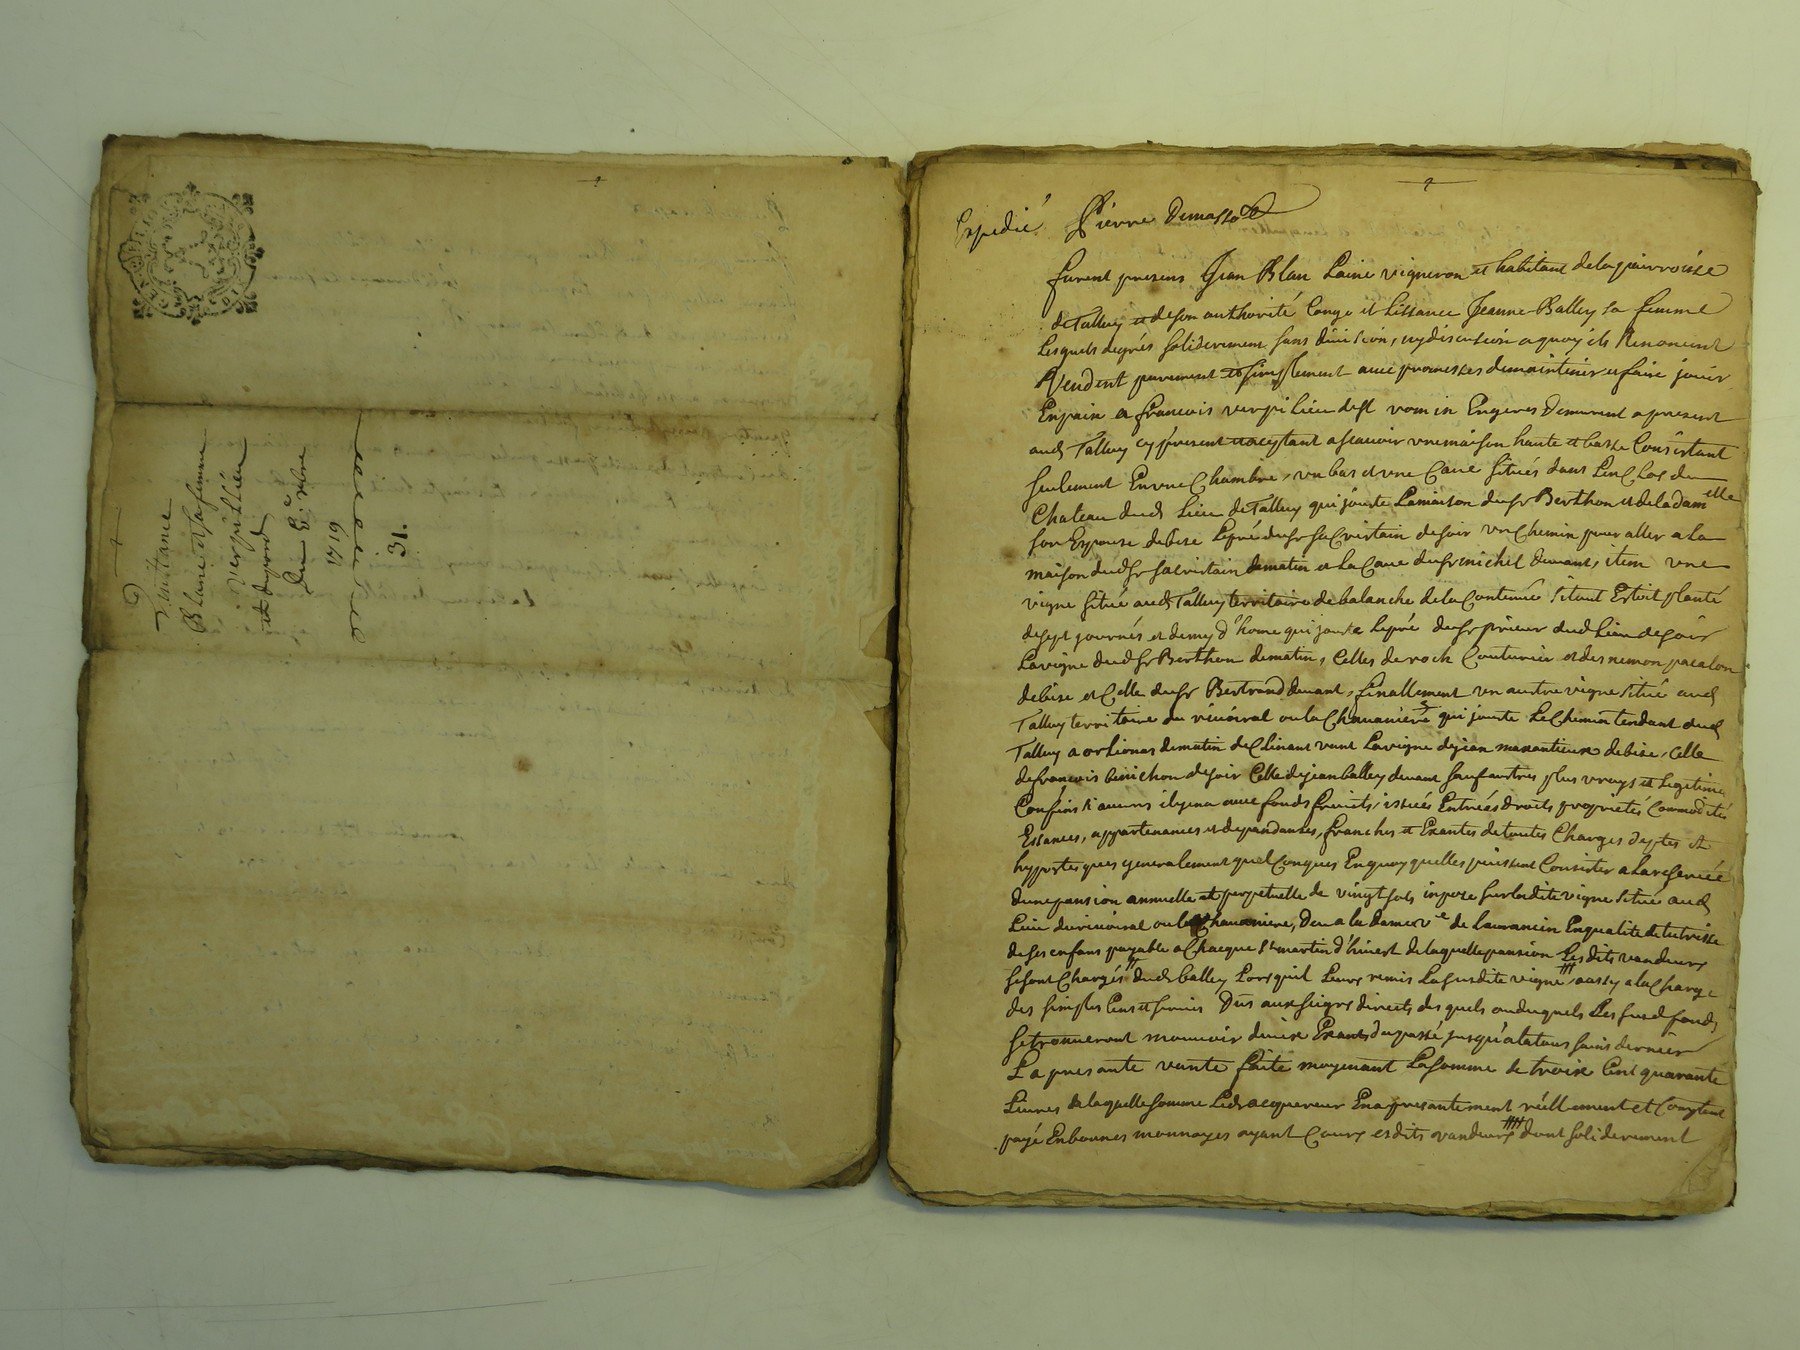 quittance
Blanc et sa femme
Verpillieu
et depend
du 6e xbre
1719
31.
Expedié Pierre Demasso
furent presens Jean Blan Laine vigneron et habitant de la parroisse
de Talluy et de son authorité Conge et Lissance Jeanne Balley sa femme
Lesquels degrés soliderement sans division, ny discusion a quoy ils Renoncent
Vendent purement et simplement avec promesses de maintenir et faire jouir
En paix a francois verpilieu de St romin En geres Demurent a present
aud Talluy cy present et aceptant ascavoir une maison haute et basse Consistant
seulement En une Chambre, un bas et une Cave situés dans L'enClos du
Chateau dud Lieu de Talluy qui jouste La maison du sr Berthon et de la damelle
son Espouse de bise Le pré du sr saCristain de soir un Chemin pour aller a la
maison dud sr sacristain de matin et La Cave du sr michel de vant, item une
vigne situé aud Talluy territoire de balanche de la Contenue si tout Estoit planté
de sept journés et demy d'home qui jouste le pré du sr prieur dud Lieu de soir
La vigne dud sr Berthon de matin, Celles de roch Couturier et de pacalon
de bise et Celle du sr Bertrand de vant, finallement un autre vigne situé aud
Talluy territoire du viuoiral ou la Chavaniere qui jouste Le Chemin tendant dud
Talluy a orlienas de matin declinant vent La vigne de jean de bise, Celle
de francois benichon de soir Celle de jean balley de vant sauf autres plus vrays et Legitimes
Confins si aucuns il y en a avec fonds fruits, issües Entrées droits proprietés Commodités
Essances, appartenances et dependances, franches et Exantes de toutes Charges deptes et
hypoteques generalement quelConques En quoy quelles puissent Consister a la reservée
d'une pansion annuelle et perpetuelle de vingt sols impose sur la dite vigne situé aud
Lieu du viuoiral ou la Chavaniere, Deu a la dame ve de Laurancin En qualité de tutrisse
de ses enfans payable a Chacque St martin d'hiuert de laquelle pansion Les dits vandeurs
se sont Chargés dud balley Lorsquil Leurs remis La susdite vigne, aussy a la Charge
des simples Cens et servis Dûs aux seigrs directs des quels ou duquels Les susd fonds
se trouueront mouuoir Exants du passé jusqu'a la tous sains dernier
La presante vante faite moyenant La somme de troix Cent quarante
Livres de laquelle somme Led acquereur En a presantement réellement et Comptant
payé En bonnes monnoyes ayant Cours esdits vandeurs dont soliderement